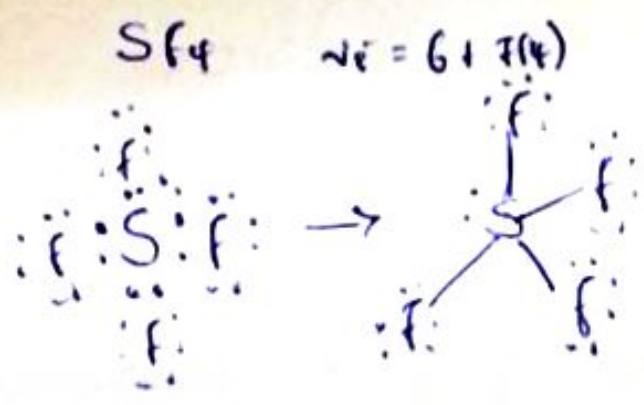 SF4 Ve = 6 + 7(4)
F F
F S F → S F
F F F